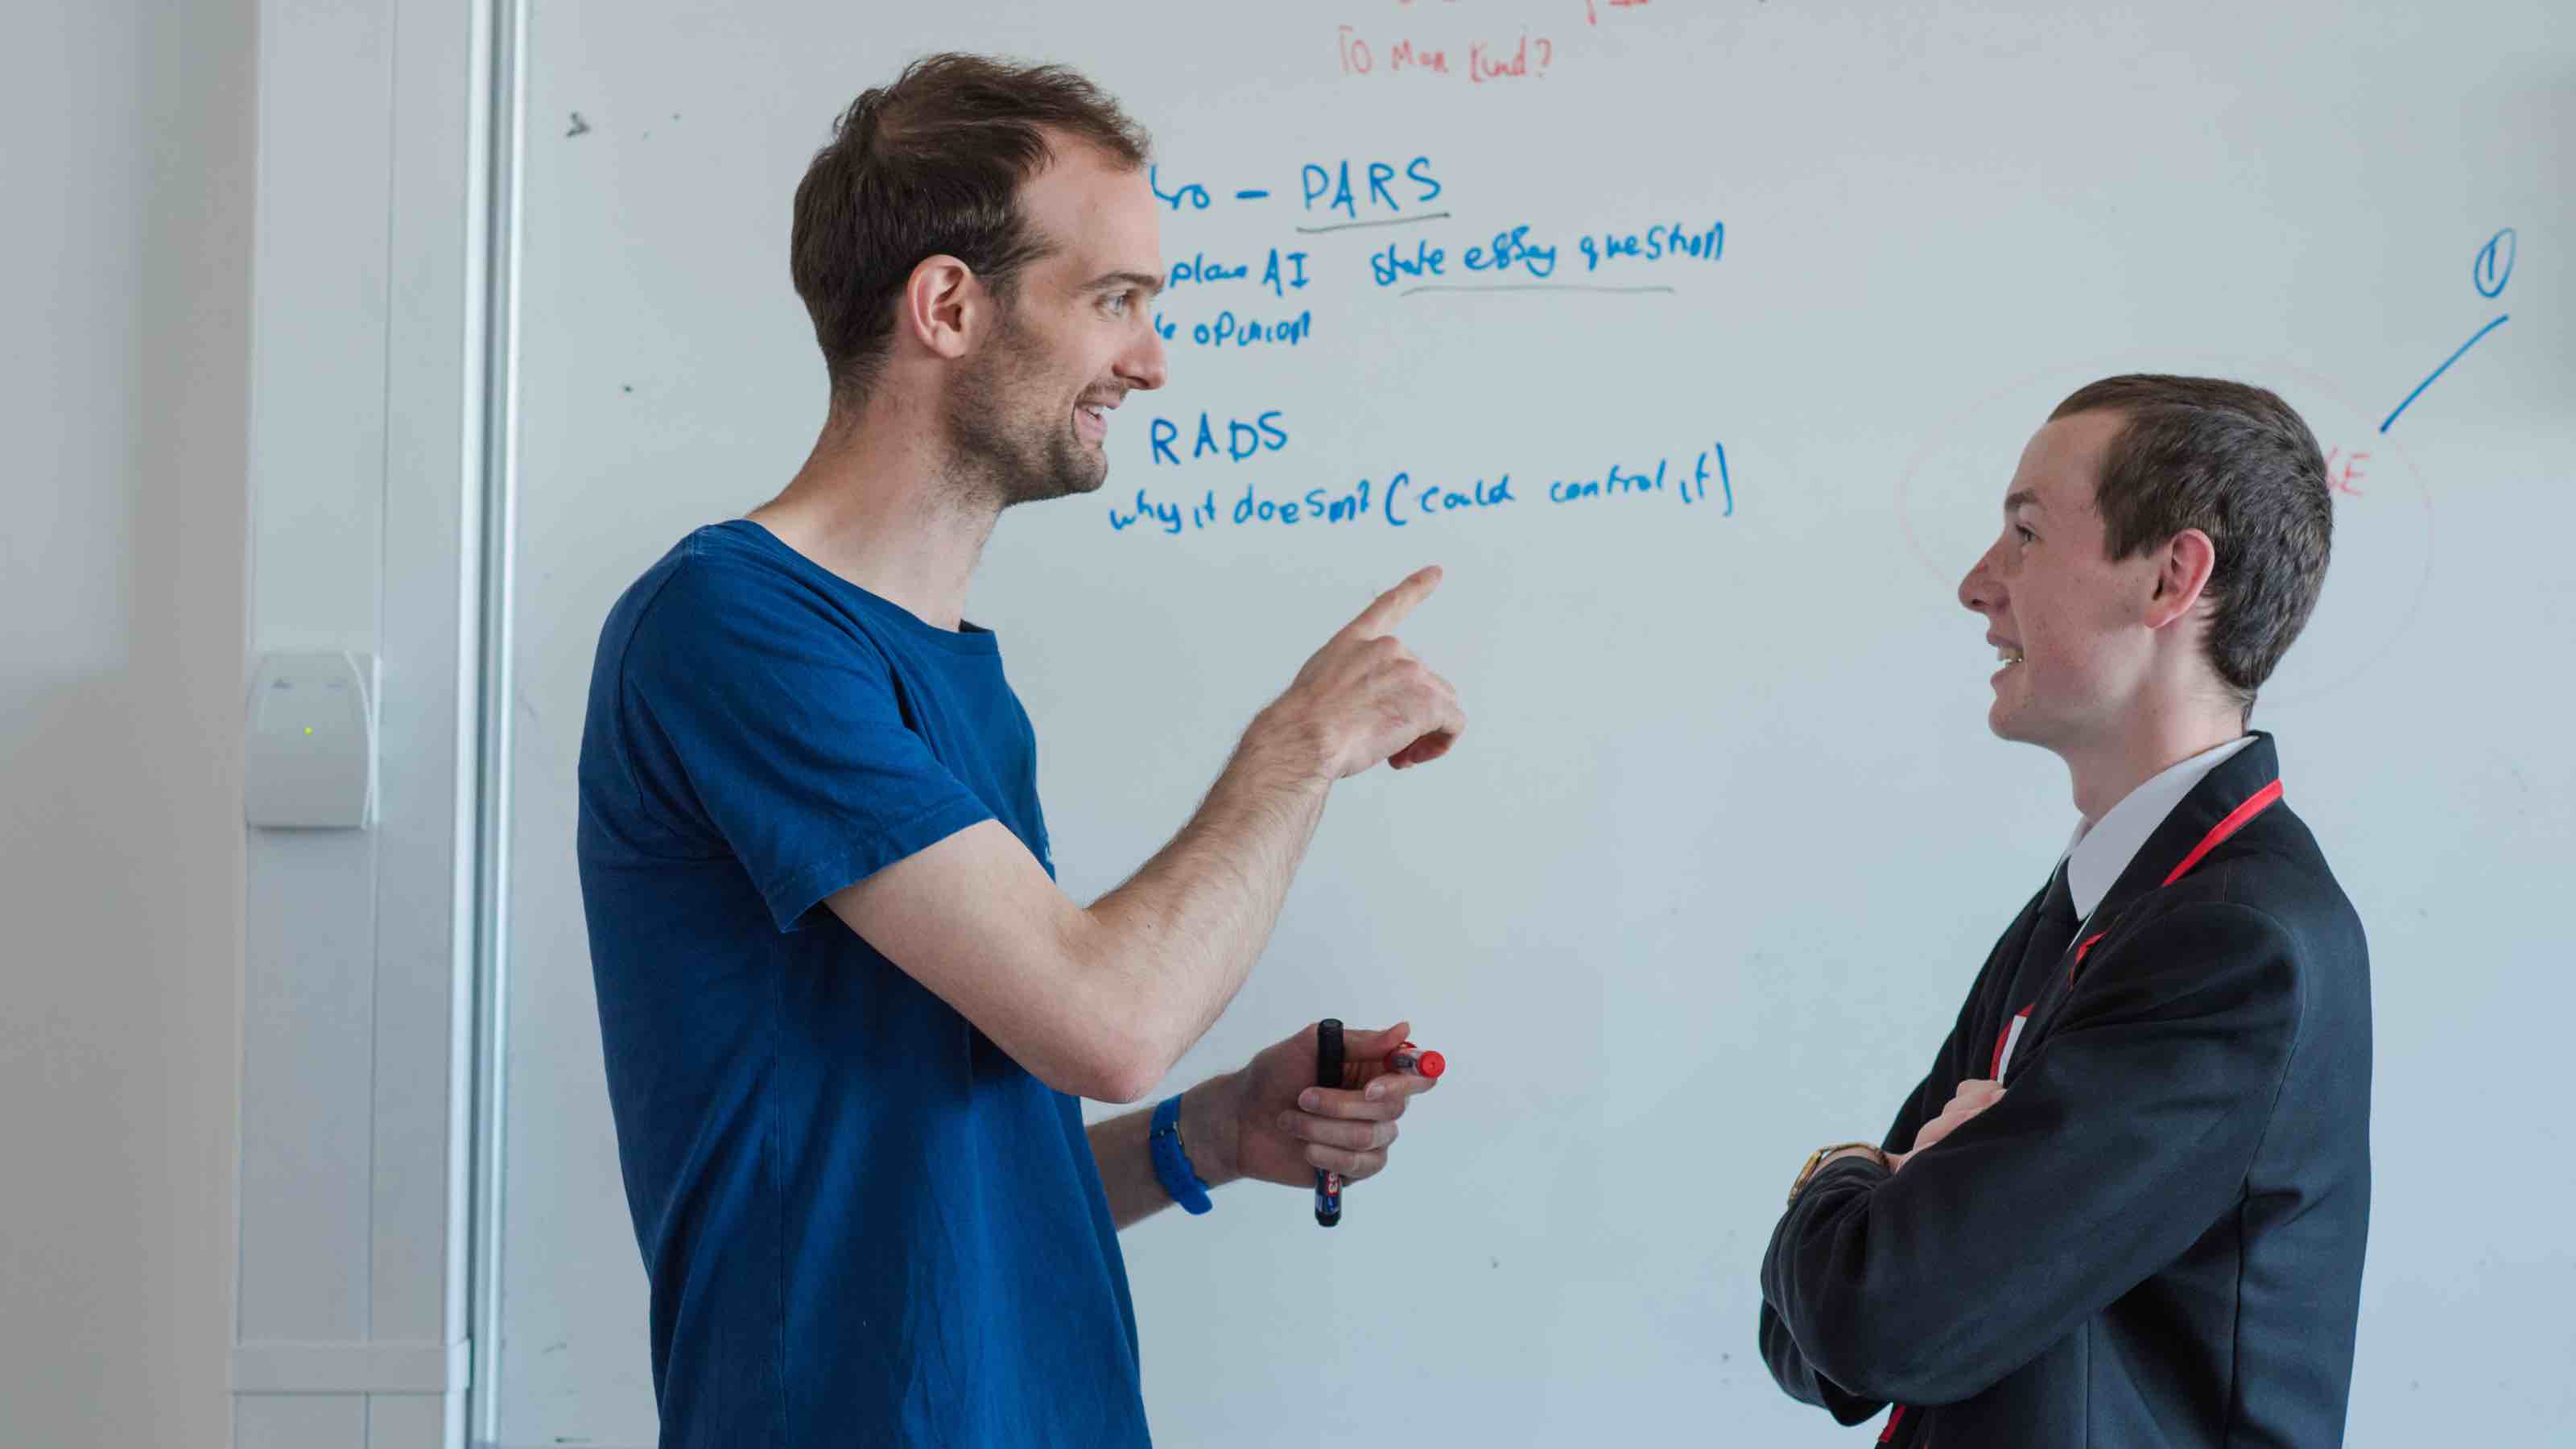 To Man Kind?
tro - PARS
plain AI state essay question
opinion
RADS
why it doesn't (could control it)
①